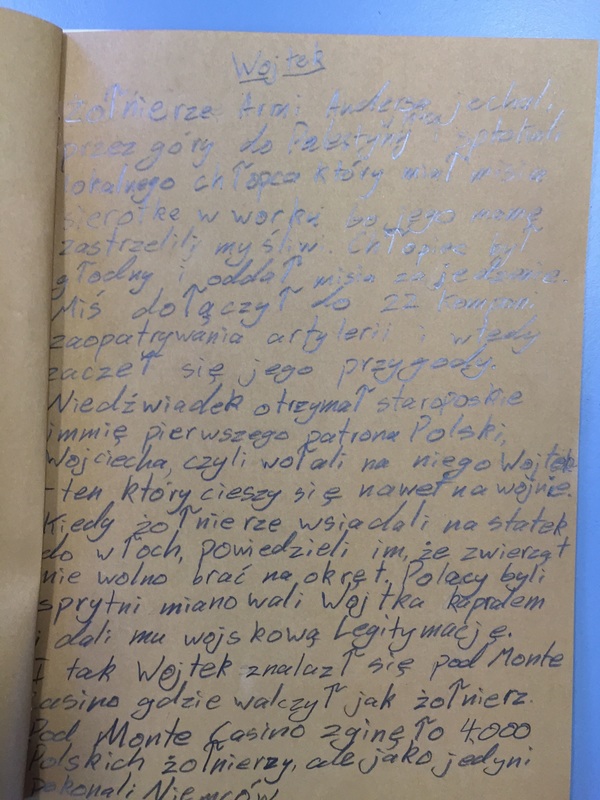 Wojtek
Żołnierze Armi Andersa jechali
przez góry do Palestyny i spotkali
lokalnego chłopca który miał misia
sierotkę w worku bo jego mamę
zastrzelili myśliwi. Chłopiec był
głodny i oddał misia za jedzenie.
Miś dołączył do 22 Kompani
zaopatrywania artylerii i wtedy
zaczeł się jego przygody.
Niedźwiadek otrzymał staroposkie
immię pierwszego patrona Polski,
Wojciecha, czyli wołali na niego Wojtek
- ten który cieszy się naweł na wojnie.
Kiedy żołnierze wsiadali na statek
do włoch, powiedzieli im, że zwierząt
nie wolno brać na okręt. Polacy byli
sprytni mianowali Wojtka kapralem
i dali mu wojskową Legitymację.
I tak Wojtek znalazł się pod Monte
Casino gdzie walczył jak żołnierz.
Pod Monte Casino zginęło 4000
Polskich żołnierzy, ale jako jedyni
pokonali Niemców